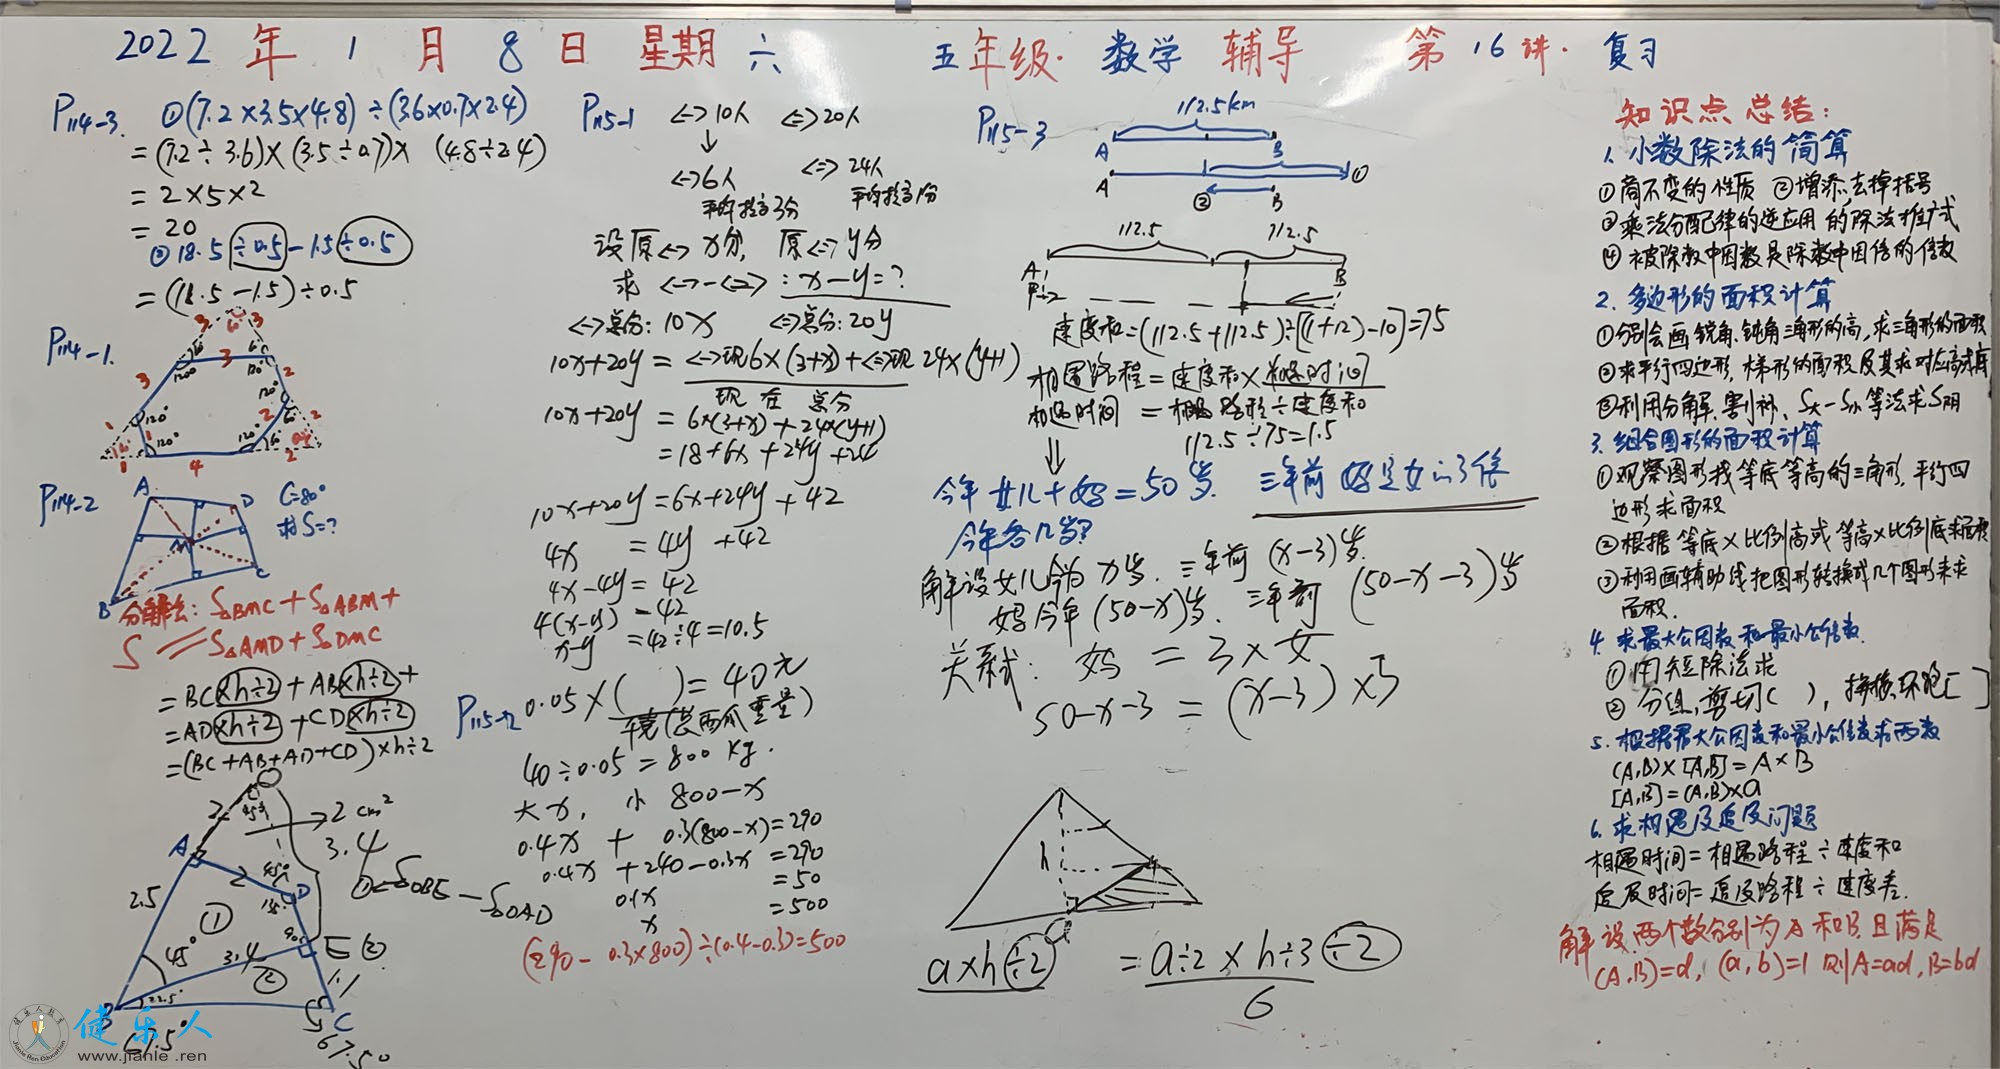 2022年1月8日 星期六 五年级·数学 辅导 第16讲·复习
P114-3. ①(7.2×3.5×4.8)÷(3.6×0.7×2.4)
=(7.2÷3.6)×(3.5÷0.7)×(4.8÷2.4)
=2×5×2
=20
②18.5÷0.5-1.5÷0.5
=(18.5-1.5)÷0.5
P114-1.
3 6 3
3 6 3 6
120° 120°
3 2
120°
1 120° 120° 2 2
1 4 2
P114-2
A D
M
B C
C=80°
求S=?
分解法:S△BMC+S△ABM+
S=S△AMD+S△DMC
=BC×h÷2+AB×h÷2+
=AD×h÷2+CD×h÷2
=(BC+AB+AD+CD)×h÷2
2 45° 2cm²
3.4
A 45°
2.5 2 D
① 135°
①=S△OBE-S△OAD
45° 3.4 90° E ②
② 1.1
B 22.5° C
67.5° 67.5°
P115-1 <一>10人 <二>20人
<一>6人 <二>24人
平均提高3分 平均提高1分
设原<一>x分, 原<二>y分
求<一>-<二>:x-y=?
<一>总分:10x <二>总分:20y
10x+20y=<一>现6×(3+x)+<二>现24×(y+1)
现在总分
10x+20y=6×(3+x)+24×(y+1)
=18+6x+24y+24
10x+20y=6x+24y+42
4x =4y+42
4x-4y=42
4(x-y)=42
x-y=42÷4=10.5
P115-2 0.05×( )=40元
千克(总西瓜重量)
40÷0.05=800kg.
大x, 小800-x
0.4x+0.3(800-x)=290
0.4x+240-0.3x=290
0.1x =50
x =500
(290-0.3×800)÷(0.4-0.3)=500
P115-3 112.5km
A B
A ② B ①
112.5 112.5
A B
速度和=(112.5+112.5)÷[(1+12)-10]=75
相遇路程=速度和×相遇时间
相遇时间=相遇路程÷速度和
112.5÷75=1.5
今年女儿+妈=50岁. 三年前妈是女的3倍
今年各几岁?
解设女儿今为x岁.三年前(x-3)岁.
妈今年(50-x)岁.三年前(50-x-3)岁
关系式:妈=3×女
50-x-3=(x-3)×3
h
a
a×h÷2 =a÷2×h÷3÷2
6
知识点总结:
1.小数除法的简算
①商不变的性质 ②增添、去掉括号
③乘法分配律的逆应用的除法推广式
④被除数中因数是除数中因倍的倍数
2.多边形的面积计算
①分别会画锐角、钝角三角形的高,求三角形的面积
②求平行四边形,梯形的面积及其求对应高或底
③利用分解、割补、S大-S小等法求S阴
3.组合图形的面积计算
①观察图形找等底等高的三角形,平行四
边形求面积
②根据等底×比例高或等高×比例底求面积
③利用画辅助线把图形转换成几个图形来求
面积.
4.求最大公因数和最小公倍数.
①用短除法求
②分组,剪切( ),拼接、环跑[ ]
5.根据最大公因数和最小公倍数求两数
(A,B)×[A,B]=A×B
[A,B]=(A,B)×a
6.求相遇及追及问题
相遇时间=相遇路程÷速度和
追及时间=追及路程÷速度差.
解设两个数分别为A和B,且满足
(A,B)=d,(a,b)=1 则A=ad,B=bd
健乐人
www.jianle.ren